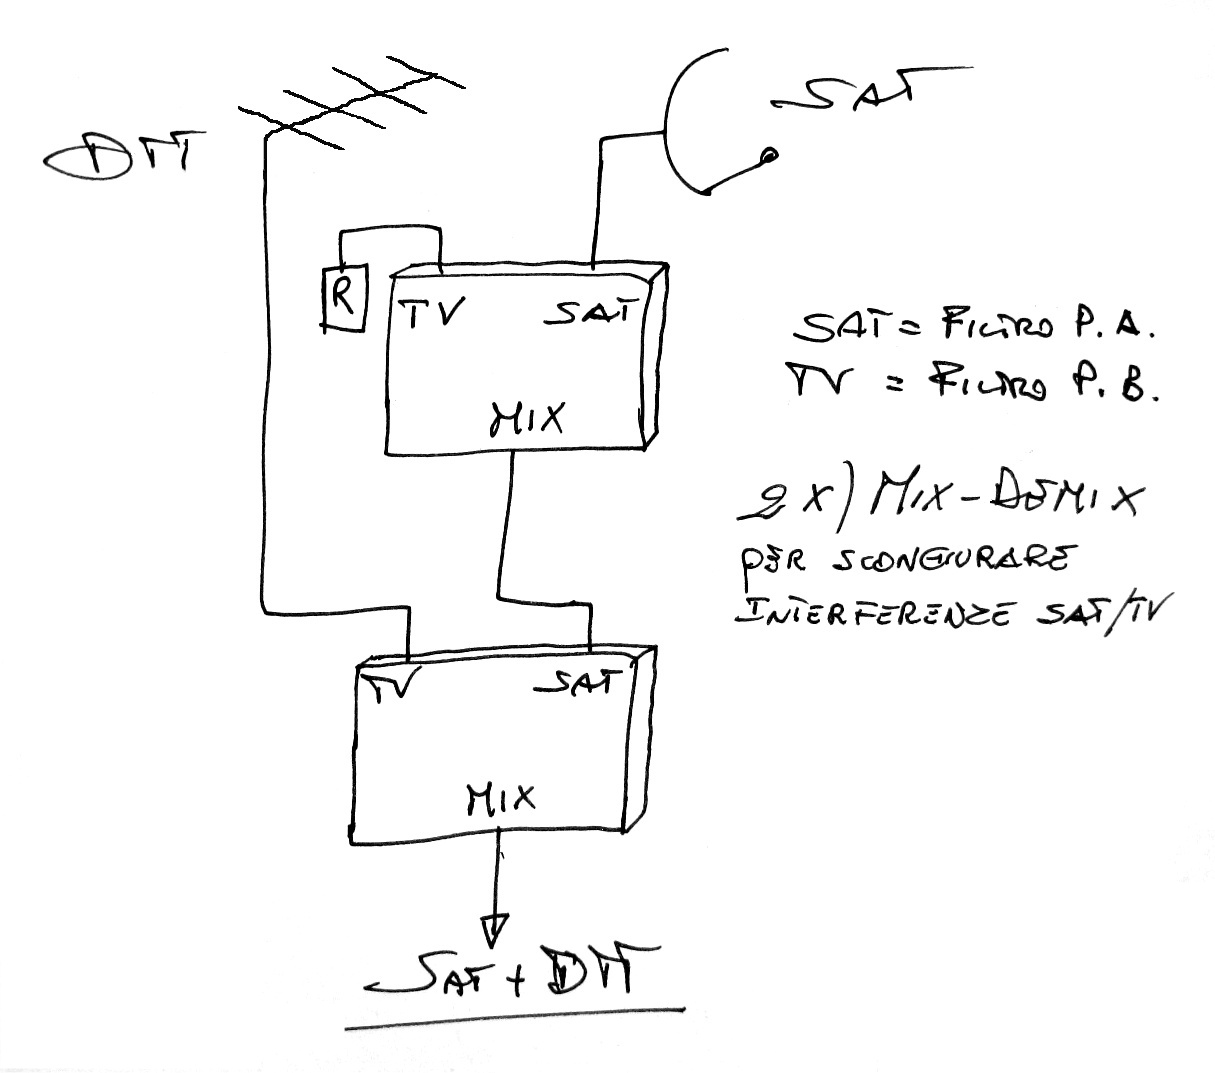 SAT
DTT
R
TV SAT
MIX
SAT = FILTRO P.A.
TV = FILTRO P.B.
2X) MIX-DEMIX
PER SCONGIURARE
INTERFERENZE SAT/TV
TV SAT
MIX
SAT + DTT